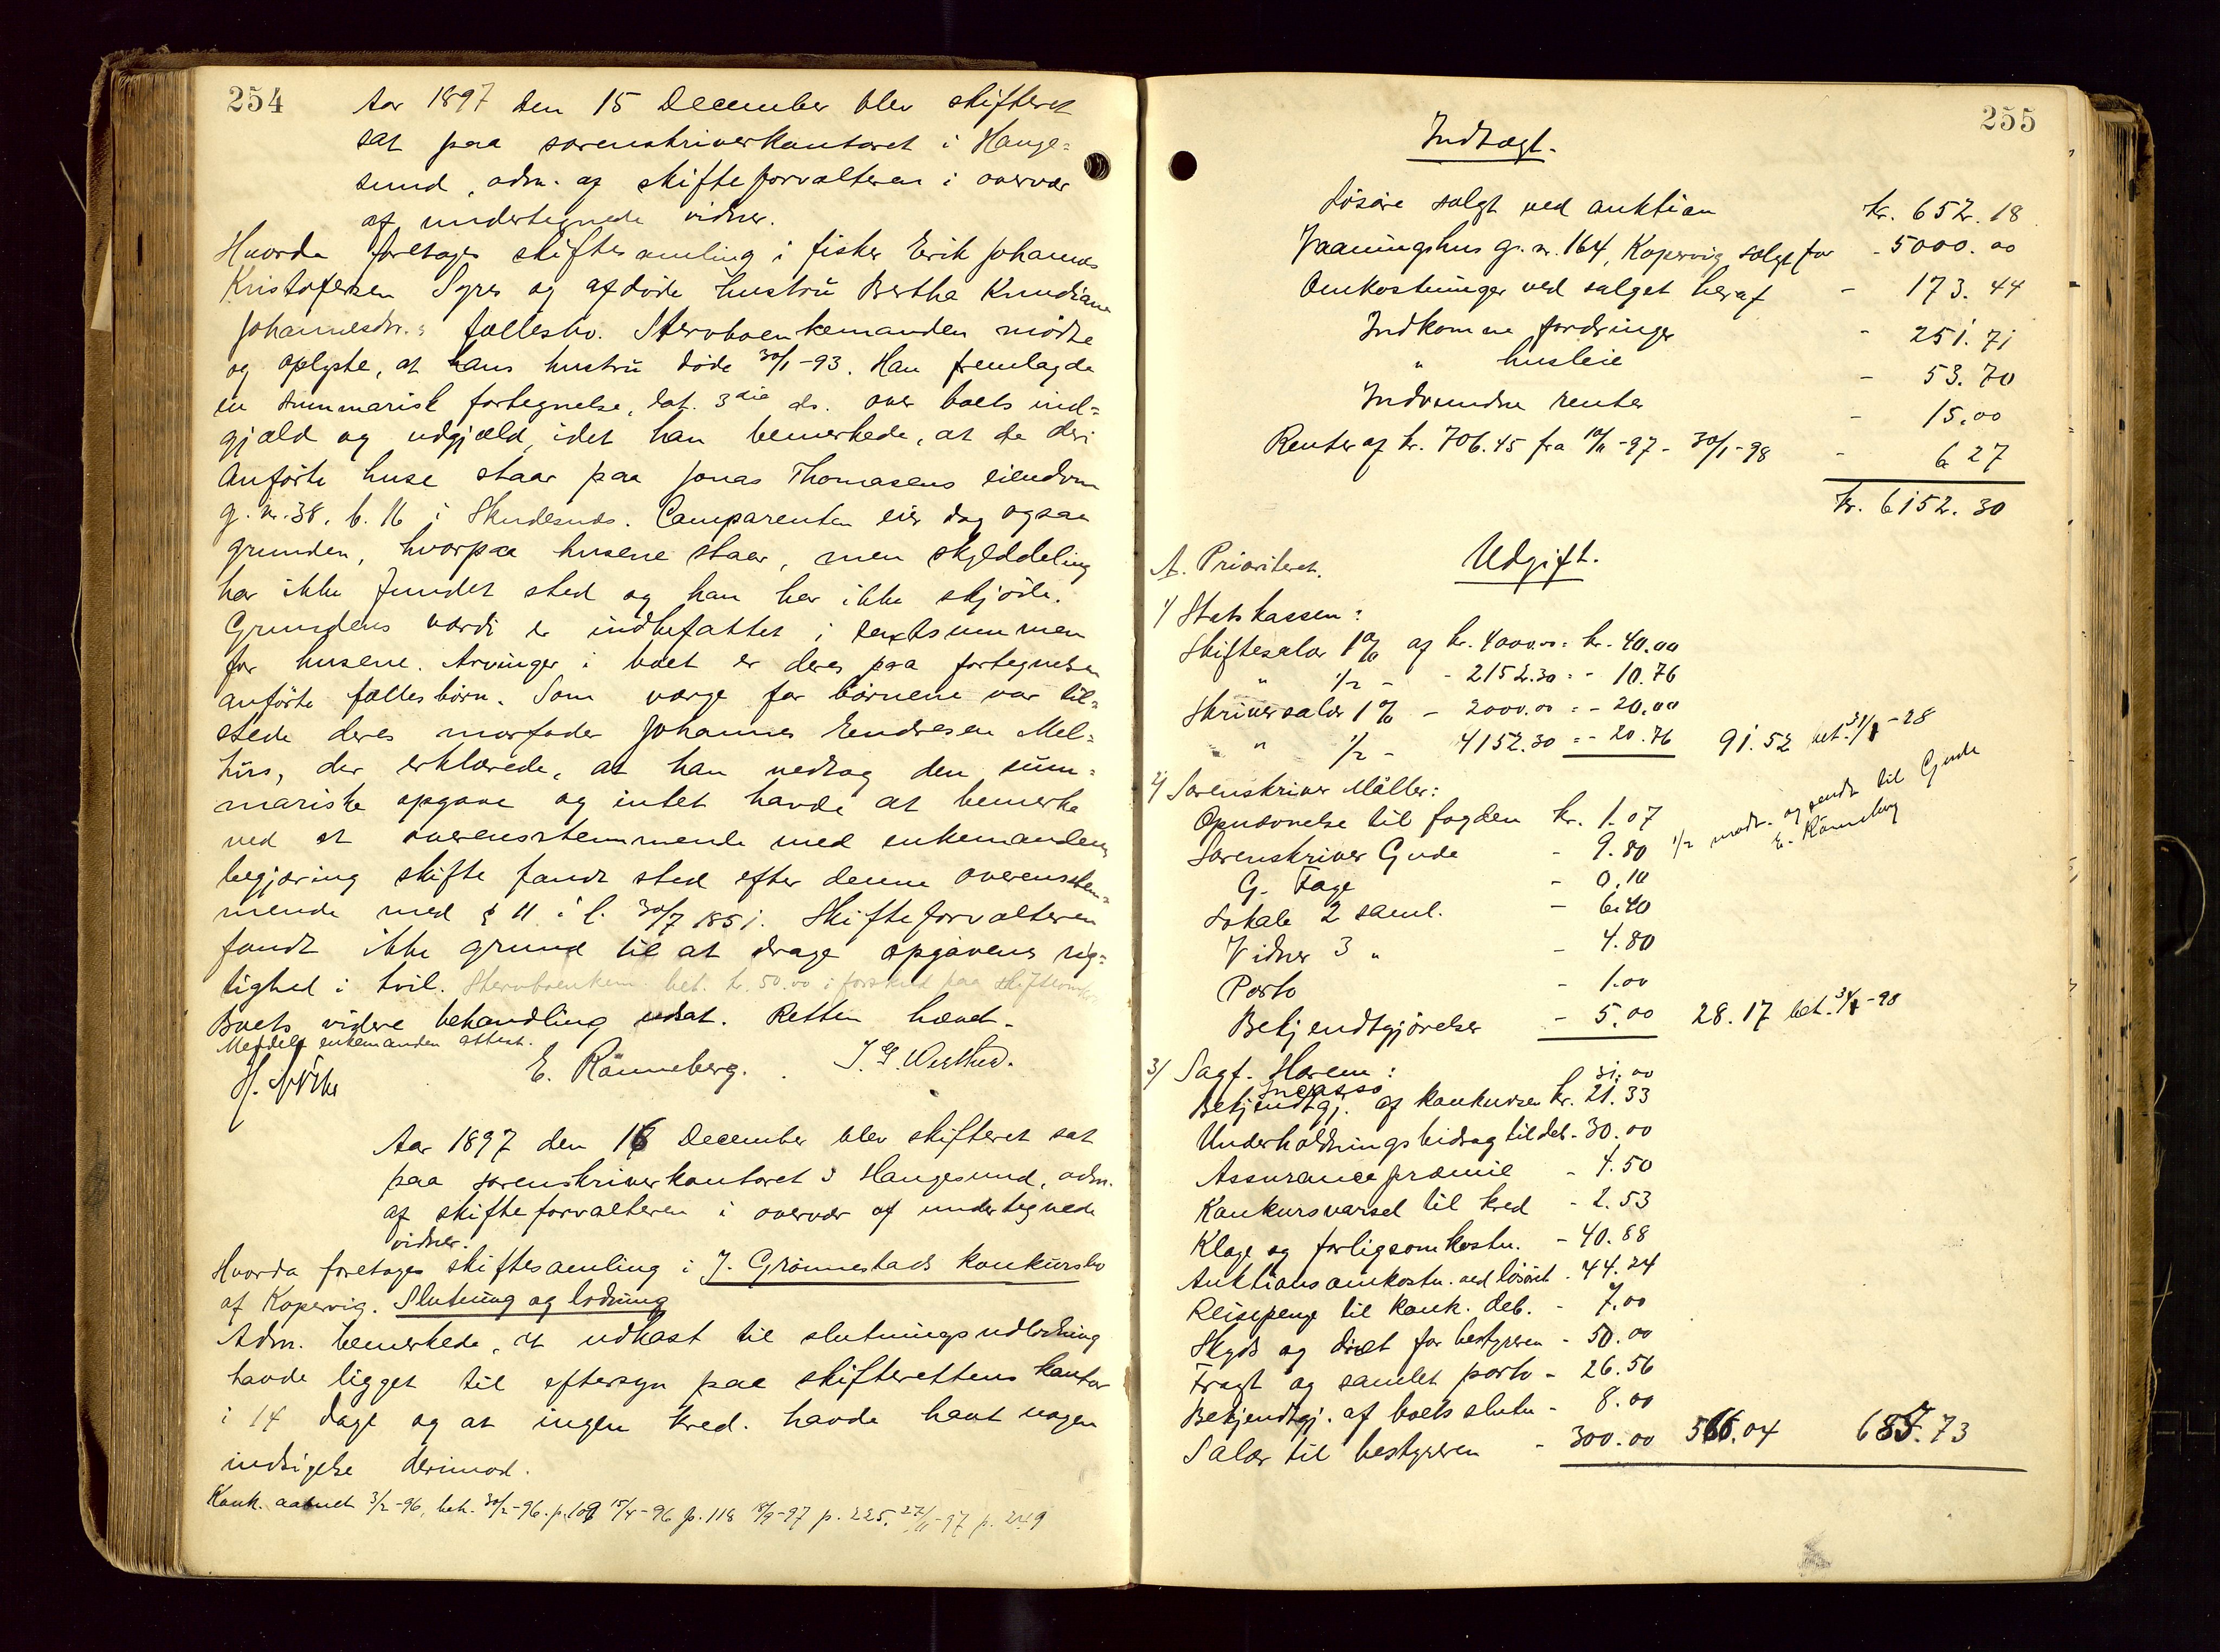 254
Aar 1897 den 15 December blev skifteret
sat paa sorenskriverkontoret i Hauge=
sund, adm. af skifteforvalteren i overvær
af undertegnede vidner.
Hvorda foretoges skiftesamling i fisker Erik Johannes
Kristofersen Syres og afdøde hustru Bertha Knudiane
Johannesdr.s fællesbo. Stervboenkemanden mødte
og oplyste, at hans hustru døde 30/1-93. Han fremlagde
en summarisk fortegnelse, dat. 3die ds. over boets ind=
gjæld og udgjæld, idet han bemerkede, at de deri
anførte huse staar paa Jonas Thomasens eiendom
g. nr. 38, b. 16 i Skudesnes. Comparenten eier dog ogsaa
grunden, hvorpaa husene staar, men skylddeling
har ikke fundet sted og han har ikke skjøde.
Grundens værdi er indbefattet i taxtsummen
for husene. Arvinger i boet er deres paa fortegnelsen
anførte fællesbørn. Som værge for børnene var til=
stede deres morfader Johannes Endresen Mel=
hus, der erklærede, at han vedtog den sum=
mariske opgave og intet havde at bemerke
ved at overensstemmende med enkemandens
begjæring skifte fandt sted efter denne overensstem=
mende med § 11 i l. 30/7 1851. Skifteforvalteren
fandt ikke grund til at drage opgavens rig=
tighed i tvil. Stervboenkem. bet. kr. 50.00 i forskud paa skifteomk.
Boets videre behandling udsat. Retten hævet.
Meddelt enkemanden attest.
E. Rønneberg. J. G. Westhed.
Aar 1897 den 16 December blev skifteret sat
paa sorenskriverkontoret i Haugesund, adm.
af skifteforvalteren i overvær af undertegnede
vidner.
Hvorda foretoges skiftesamling i J. Grønnestads konkursbo
af Kopervig. Slutning og lodning
Adm. bemerkede, at udkast til slutningsudlodning
havde ligget til eftersyn paa skifterettens kontor
i 14 dage og at ingen kred. havde havt nogen
indsigelse derimod.
Konk. aabnet 3/2-96, beh. 30/2-96. p. 109 15/4-96 p. 118 18/9-97 p. 225. 27/11-97 p. 249
255
Indtægt.
Løsøre solgt ved auktion kr. 652.18
Vaaningshus g. nr. 164, Kopervig solgt for - 5000.00
Omkostninger ved salget heraf - 173.44
Indkomne fordringer - 251.71
" husleie - 53.70
Indvundne renter - 15.00
Renter af kr. 706.45 fra 10/11-97 - 30/1-98 - 6.27
kr. 6152.30
Udgift.
A. Prioriteret.
1/ Statskassen:
Skiftesalær 1% af kr. 4000.00 = kr. 40.00
" 1/2 - - 2152.30 = - 10.76
Skriversalær 1% - 2000.00 = - 20.00
" 1/2 - 4152.30 = - 20.76 91.52 bet. 31/1-98
2/ Sorenskriver Møller:
Opnævnelse til fogden kr. 1.07
Sorenskriver Gude - 9.80 1/2 modt. og sendt til Gude
E. Rønneberg
G. Fage - 0.10
Lokale 2 saml. - 6.40
Vidner 3 " - 4.80
Porto - 1.00
Bekjendtgjørelser - 5.00 28.17 bet. 31/1-98
3/ Sagf. Harem:
Incasso 31.00
Bekjendtgj. af konkursen kr. 21.33
Underholdningsbidrag til deb. - 30.00
Assurancepræmie - 4.50
Konkursvarsel til kred - 2.53
Klage og forligsomkostn. - 40.88
Auktionsomkostn. ved løsøret - 44.24
Reisepenge til konk. deb. - 7.00
Skyds og diæt for bestyreren - 50.00
Fragt og samlet porto - 26.56
Bekjendtgj. af boets slutn - 8.00
Salær til bestyreren - 300.00 566.04 685.73